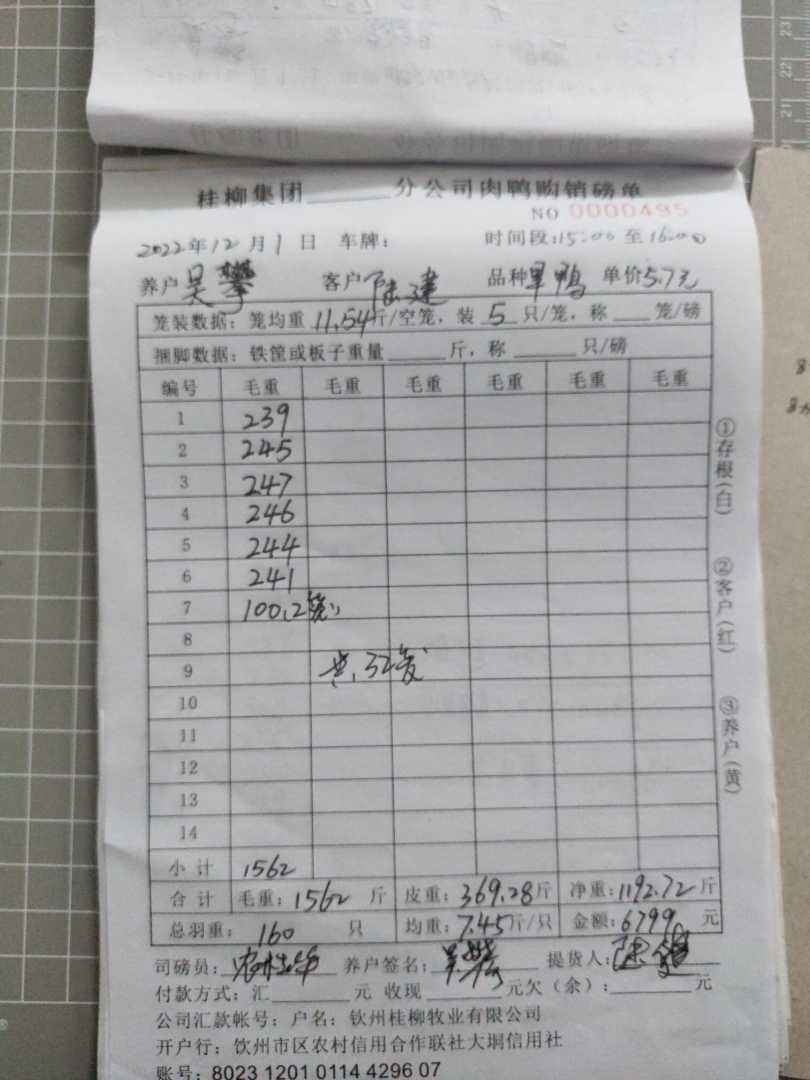 桂柳集团______分公司肉鸭购销磅单
NO 0000495
2022年12月1日 车牌: 时间段:15:00至16:00
养户 吴攀 客户 陆建 品种 旱鸭 单价 5.7元
笼装数据: 笼均重 11.54斤/空笼, 装 5 只/笼, 称____笼/磅
捆脚数据: 铁筐或板子重量______斤, 称______只/磅
编号 毛重 毛重 毛重 毛重 毛重 毛重
1 239
2 245
3 247
4 246
5 244
6 241
7 100,2笼
8
9 共,32笼
10
11
12
13
14
小计 1562
合计 毛重: 1562 斤 皮重: 369.28斤 净重: 1192.72斤
总羽重: 160 只 均重: 7.45斤/只 金额: 6799 元
司磅员: 养户签名: 提货人:
付款方式: 汇______元 收现______元欠(余):______元
公司汇款帐号: 户名: 钦州桂柳牧业有限公司
开户行: 饮州市区农村信用合作联社大垌信用社
账号: 8023 1201 0114 4296 07
①存根(白)
②客户(红)
③养户(黄)